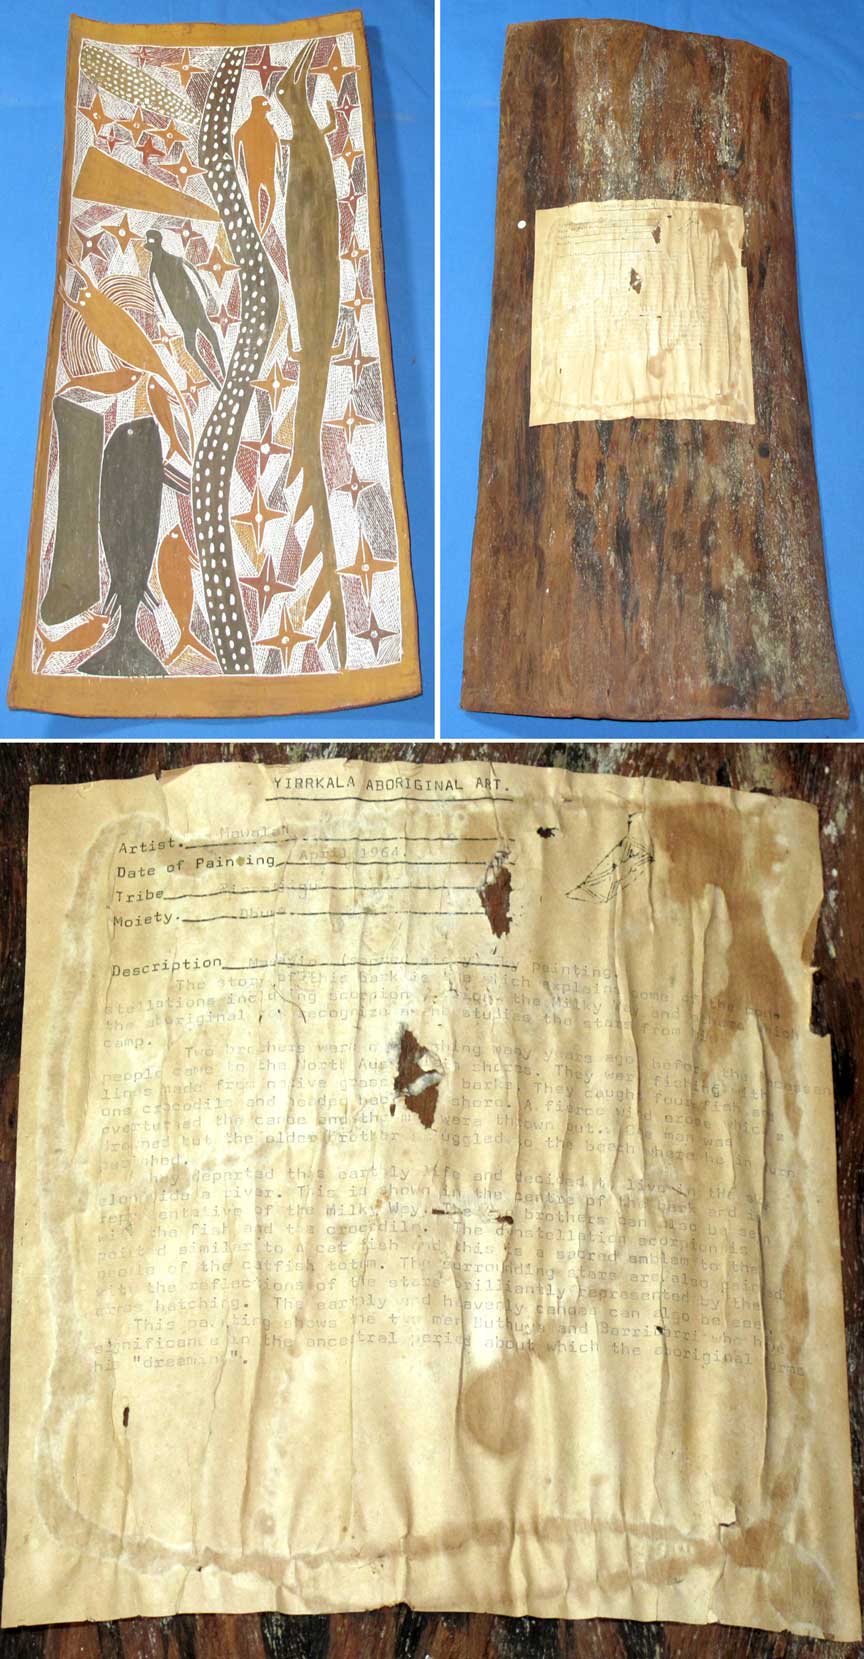 YIRRKALA ABORIGINAL ART.
Artist. Mawalan
Date of Painting April 1964.
Tribe
Moiety.
Description painting.
The story of this bark is the which explains some of the con-
stellations including scorpion the Milky Way and others which
the aboriginal folk recognize as he studies the stars from his
camp.
Two brothers were out fishing many years ago, before the
people came to the North shores. They were fishing with
lines made from native grass barks. They caught four fish and
one crocodile and headed back shore. A fierce wind arose which
overturned the canoe and the men were thrown out. One man was
drowned but the older brother struggled to the beach where he in turn
perished.
They departed this earthly life and decided to live in the sky
alongside a river. This is shown in the centre of the bark and is
representative of the Milky Way. The two brothers can also be seen
with the fish and the crocodile. The constellation scorpion is
painted similar to a cat fish and this is a sacred emblem to the
people of the catfish totem. The surrounding stars are also painted
with the reflections of the stars brilliantly represented by the
cross hatching. The earthly and heavenly canoes can also be seen.
This painting shows the two men and who have
significance in the ancestral period about which the aboriginal
his "dreaming".